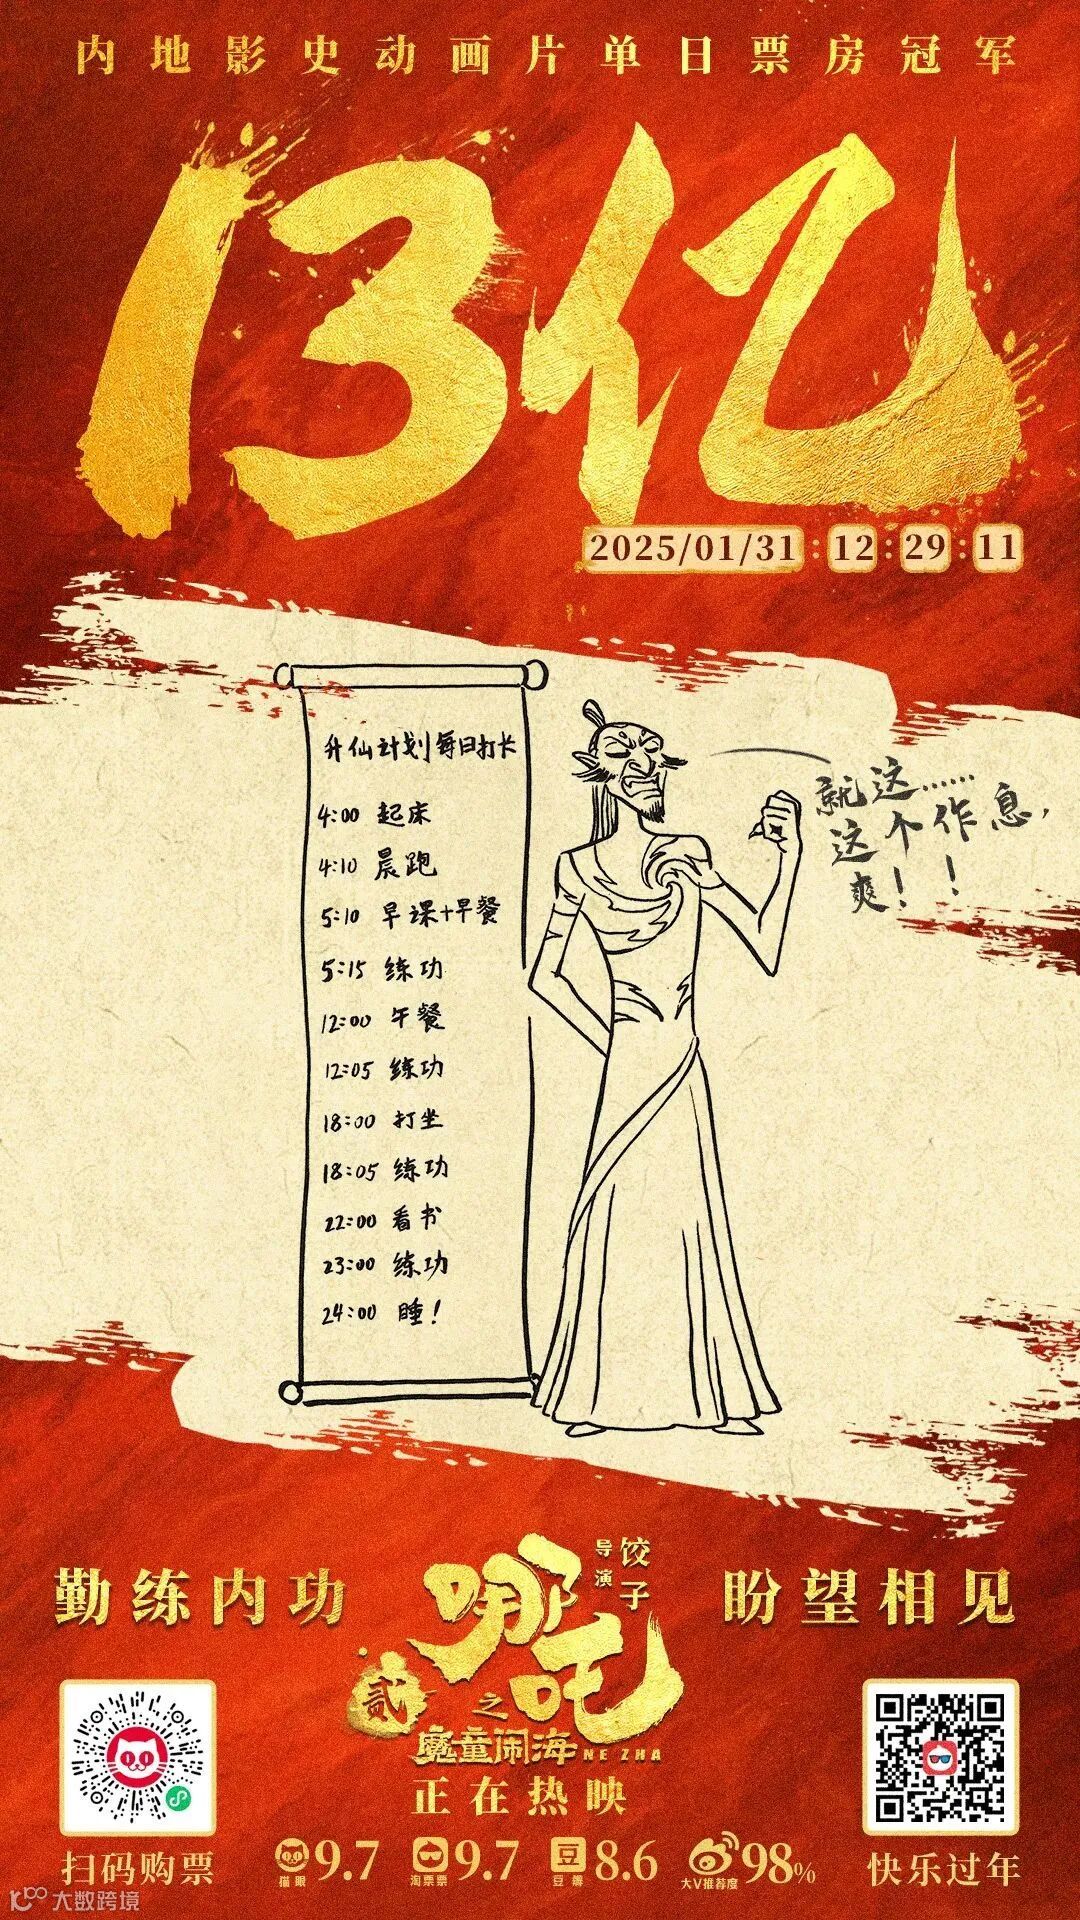 内地影史动画片单日票房冠军
13亿
2025/01/31:12:29:11
升仙计划每日打卡
4:00 起床
4:10 晨跑
5:10 早课+早餐
5:15 练功
12:00 午餐
12:05 练功
18:00 打坐
18:05 练功
22:00 看书
23:00 练功
24:00 睡！
就这……
这个作息，
爽！！
勤练内功
导演 饺子
哪吒
贰
之
魔童闹海 NE ZHA
盼望相见
正在热映
扫码购票
猫眼 9.7
淘票票 9.7
豆
豆瓣 8.6
大V推荐度 98%
快乐过年
大数跨境